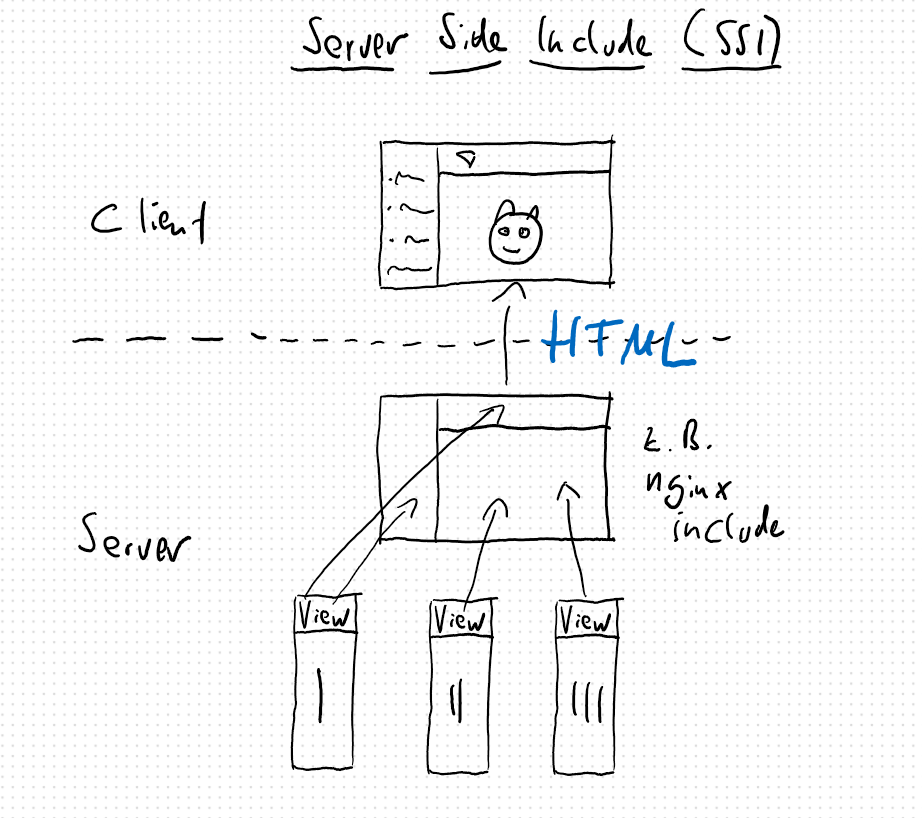 Server Side Include (SSI)
Client
HTML
z.B.
nginx
include
Server
View
View
View
I
II
III